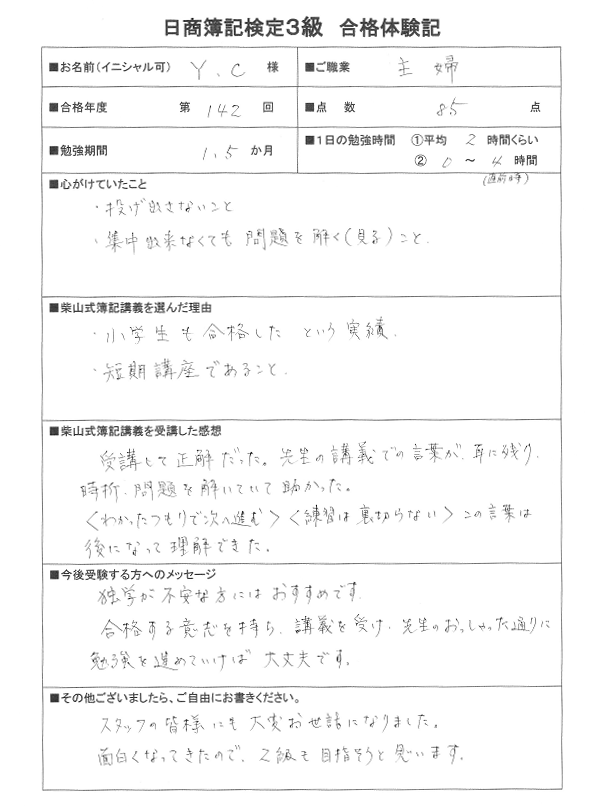 日商簿記検定3級 合格体験記
■お名前(イニシャル可) Y.C 様 ■ご職業 主婦
■合格年度 第 142 回 ■点数 85 点
■勉強期間 1.5 か月 ■1日の勉強時間 ①平均 2 時間くらい
② 0 ～ 4 時間
(直前時)
■心がけていたこと
・投げ出さないこと
・集中出来なくても問題を解く(見る)こと.
■柴山式簿記講義を選んだ理由
・小学生も合格した という実績.
・短期講座であること.
■柴山式簿記講義を受講した感想
受講して正解だった。先生の講義での言葉が、耳に残り、
時折、問題を解いていて助かった。
<わかったつもりで次へ進む> <練習は裏切らない> この言葉は
後になって理解できた。
■今後受験する方へのメッセージ
独学が不安な方にはおすすめです.
合格する意志を持ち、講義を受け、先生のおっしゃった通りに
勉強を進めていけば 大丈夫です。
■その他ございましたら、ご自由にお書きください。
スタッフの皆様にも大変お世話になりました。
面白くなってきたので、2級も目指そうと思います.